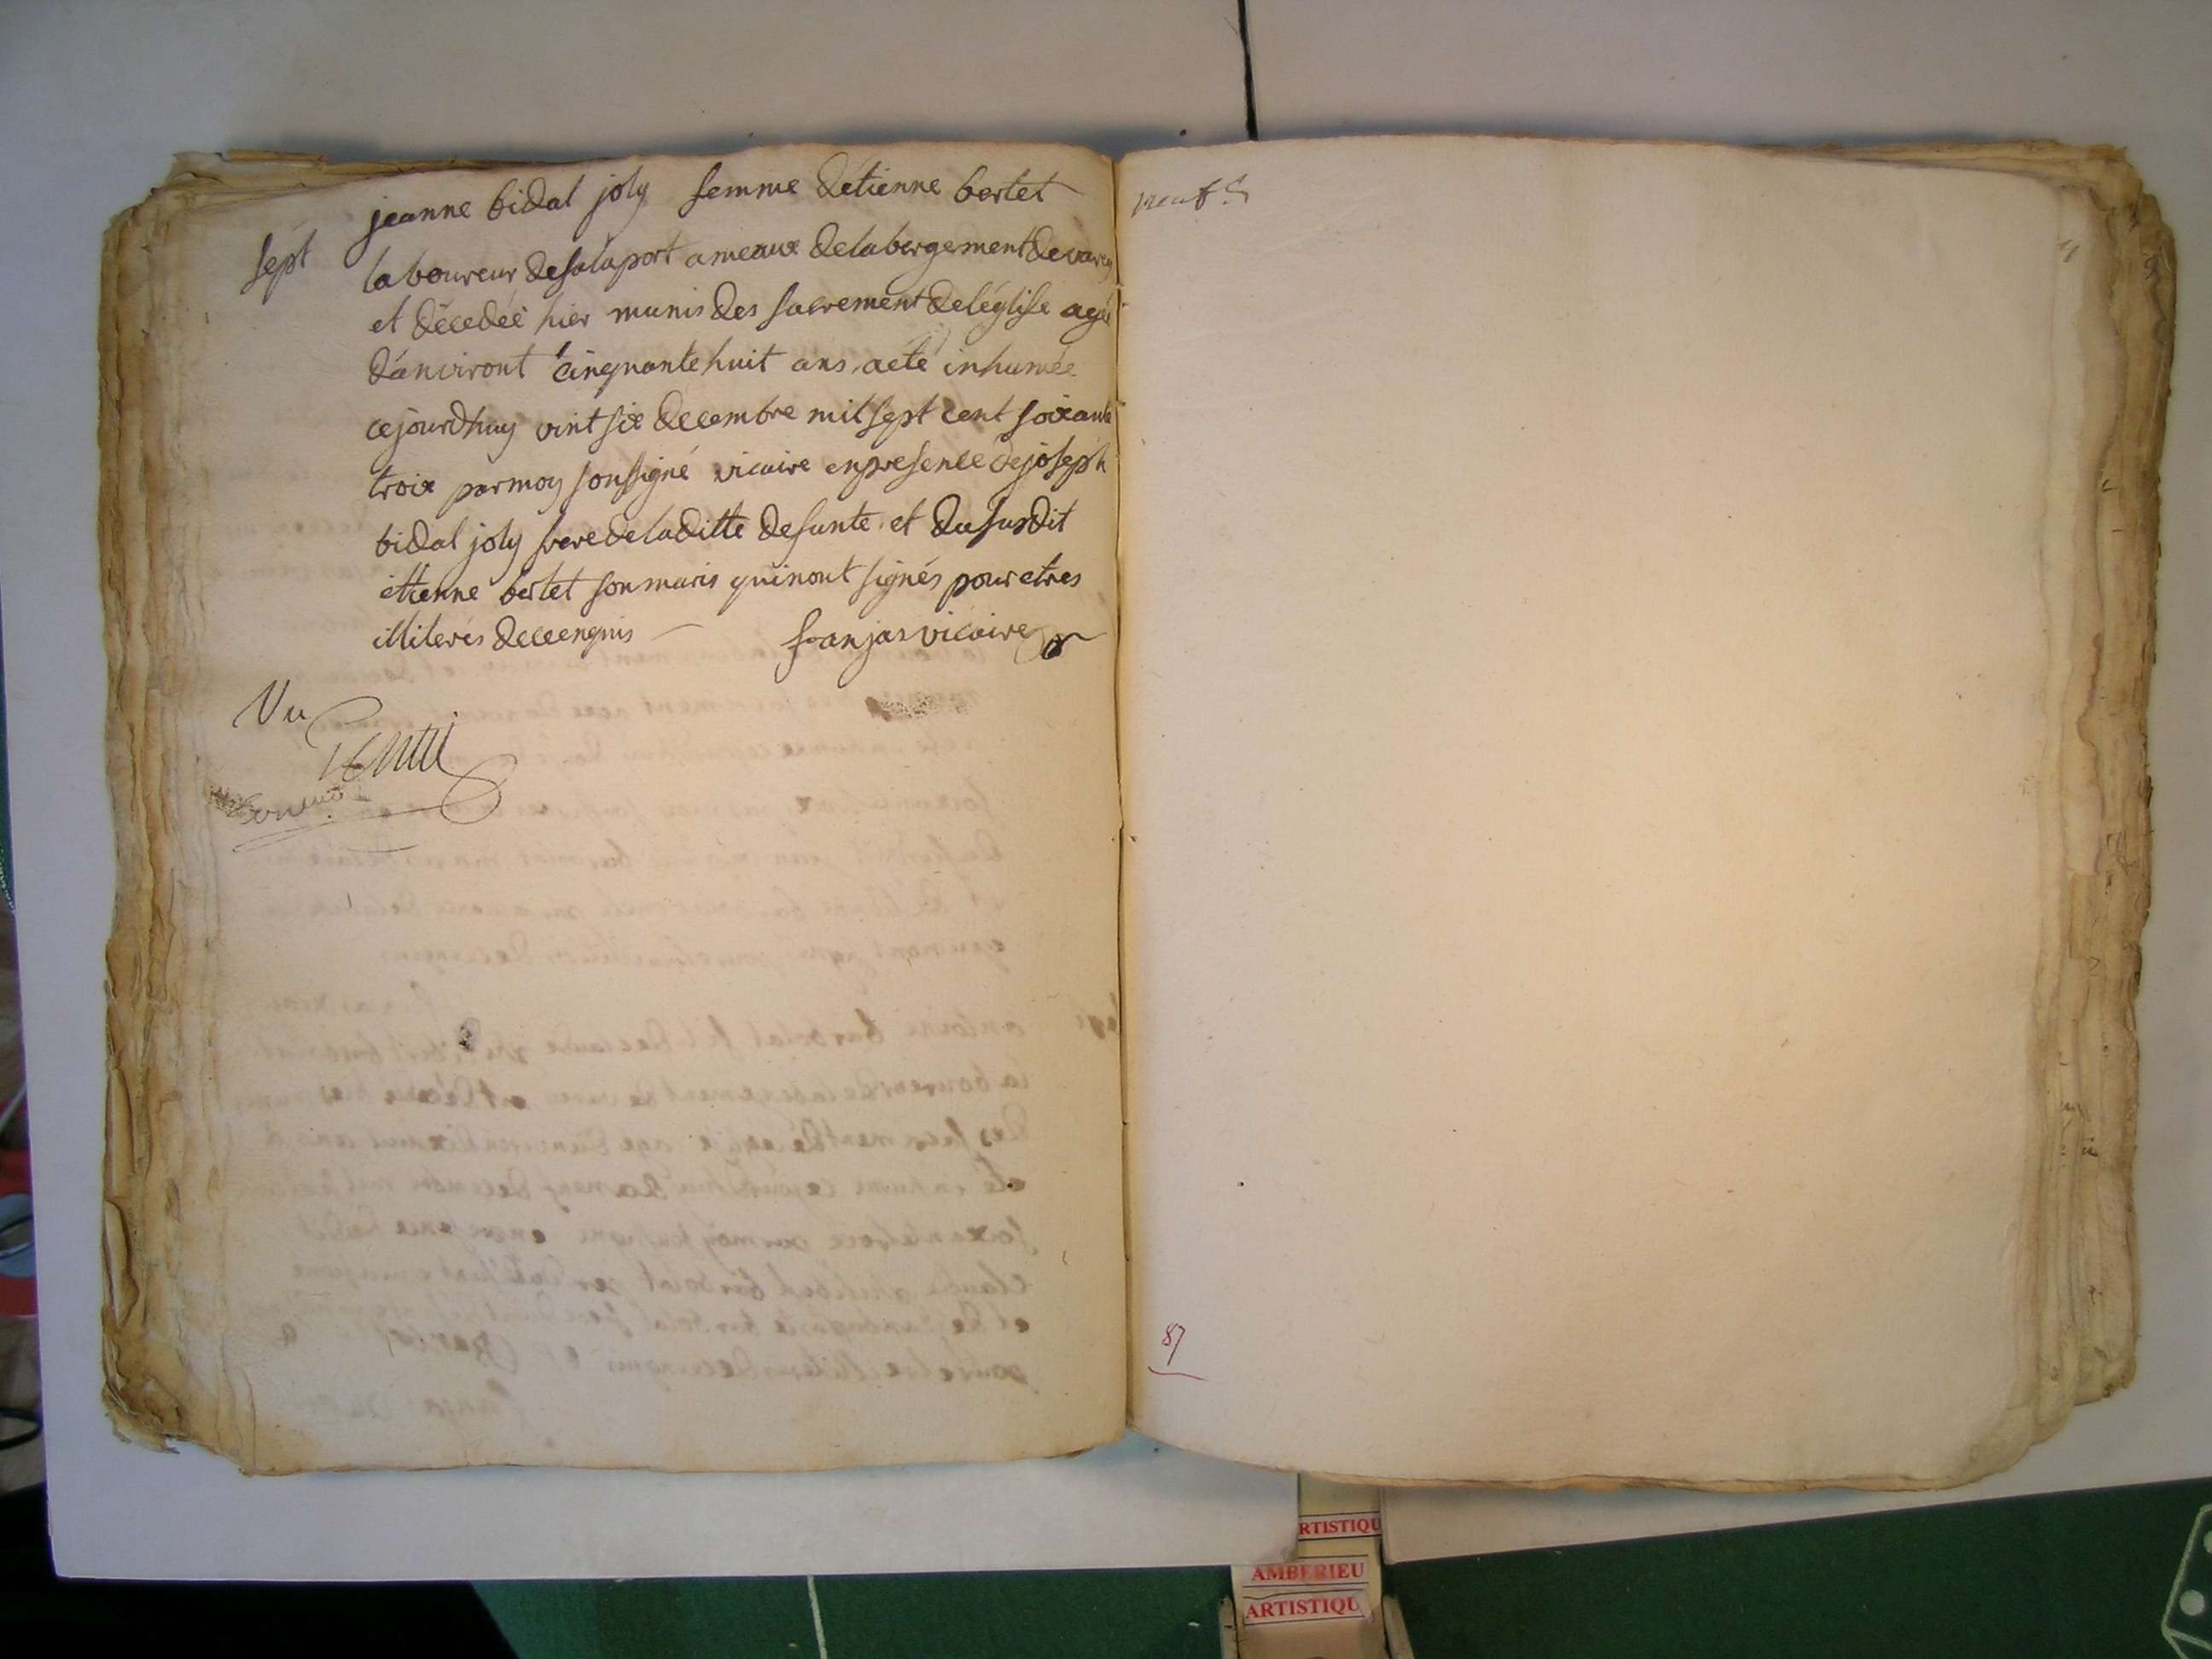 jeanne bidal joly femme détienne bertet
sept
laboureur desalaport ameaux delabergement devarey
et décedéé hier munis des sacrement deléglise agéé
dánviront cinquante huit ans, aété inhumée
cejourdhuy vint six decembre mil sept cent soixante
troix parmoy sousigné vicaire enpresence dejoseph
bidal joly frere deladitte defunte et dususdit
ettienne bertet sonmaris quinont signés pour etres
illiterés deceenquis franjas vicaire
Vu
neuf
87
RTISTIQU
AMBERIEU
ARTISTIQU